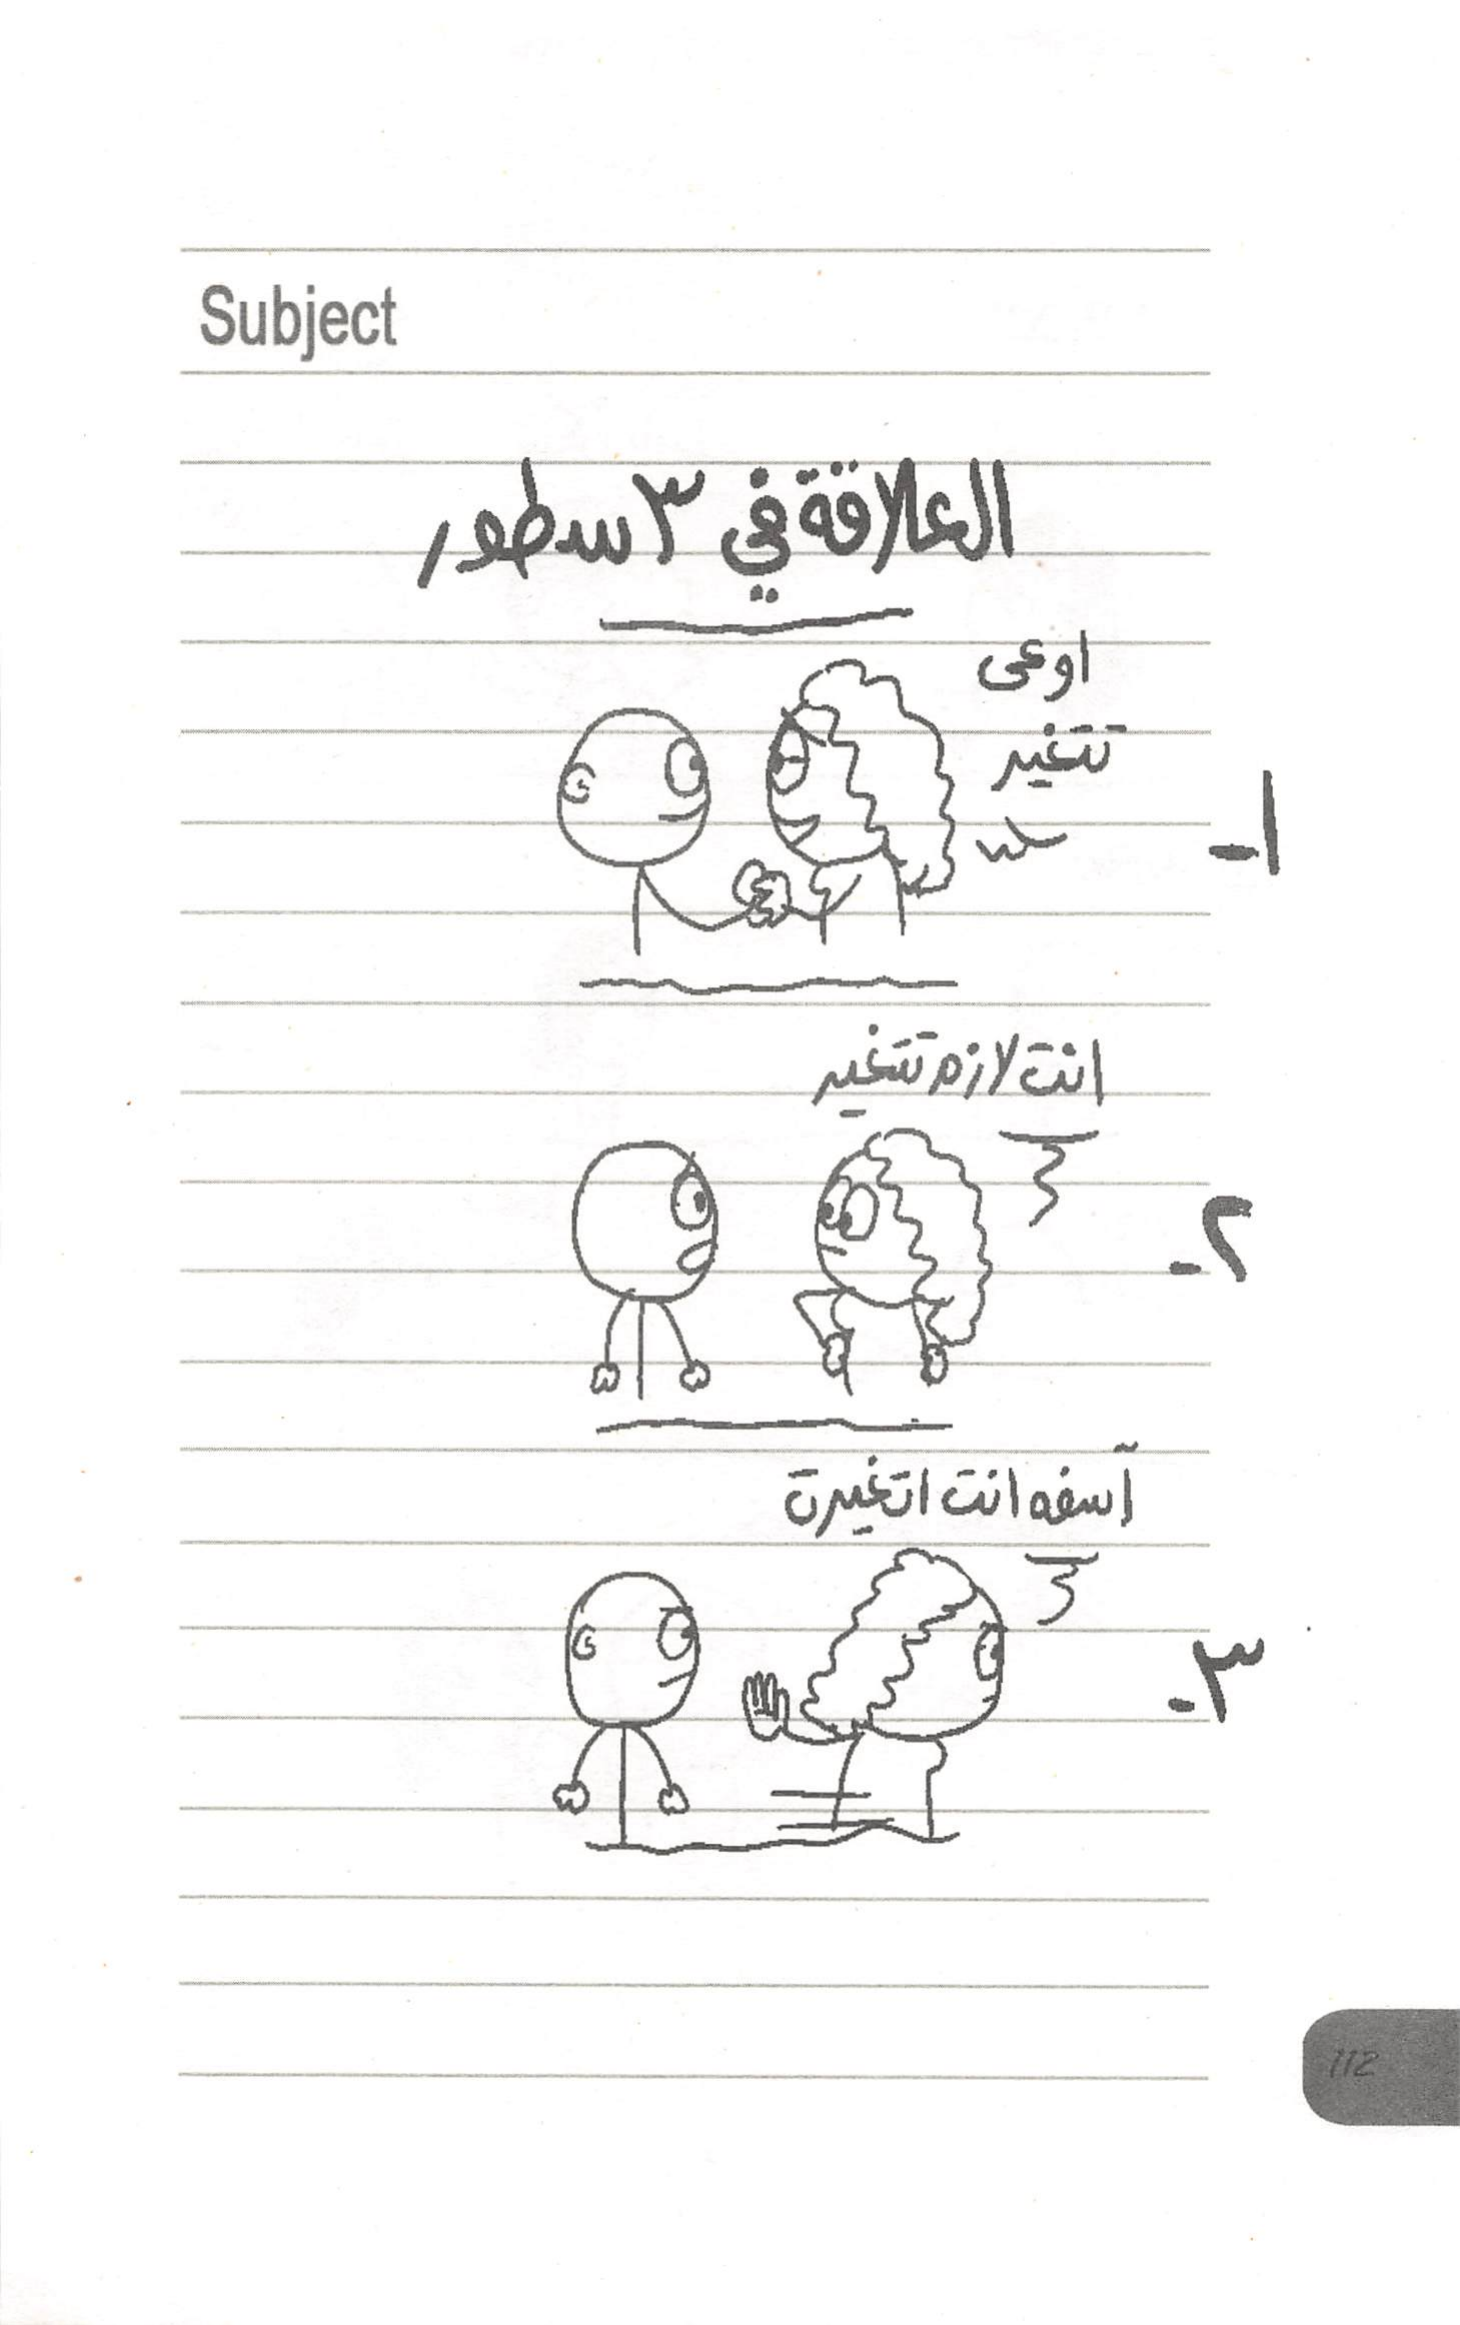 Subject
العلاقة في ٣ سطور
١-
اوعى
تتغير
٢-
انت لازم تتغير
٣-
آسفه انت اتغيرت
112